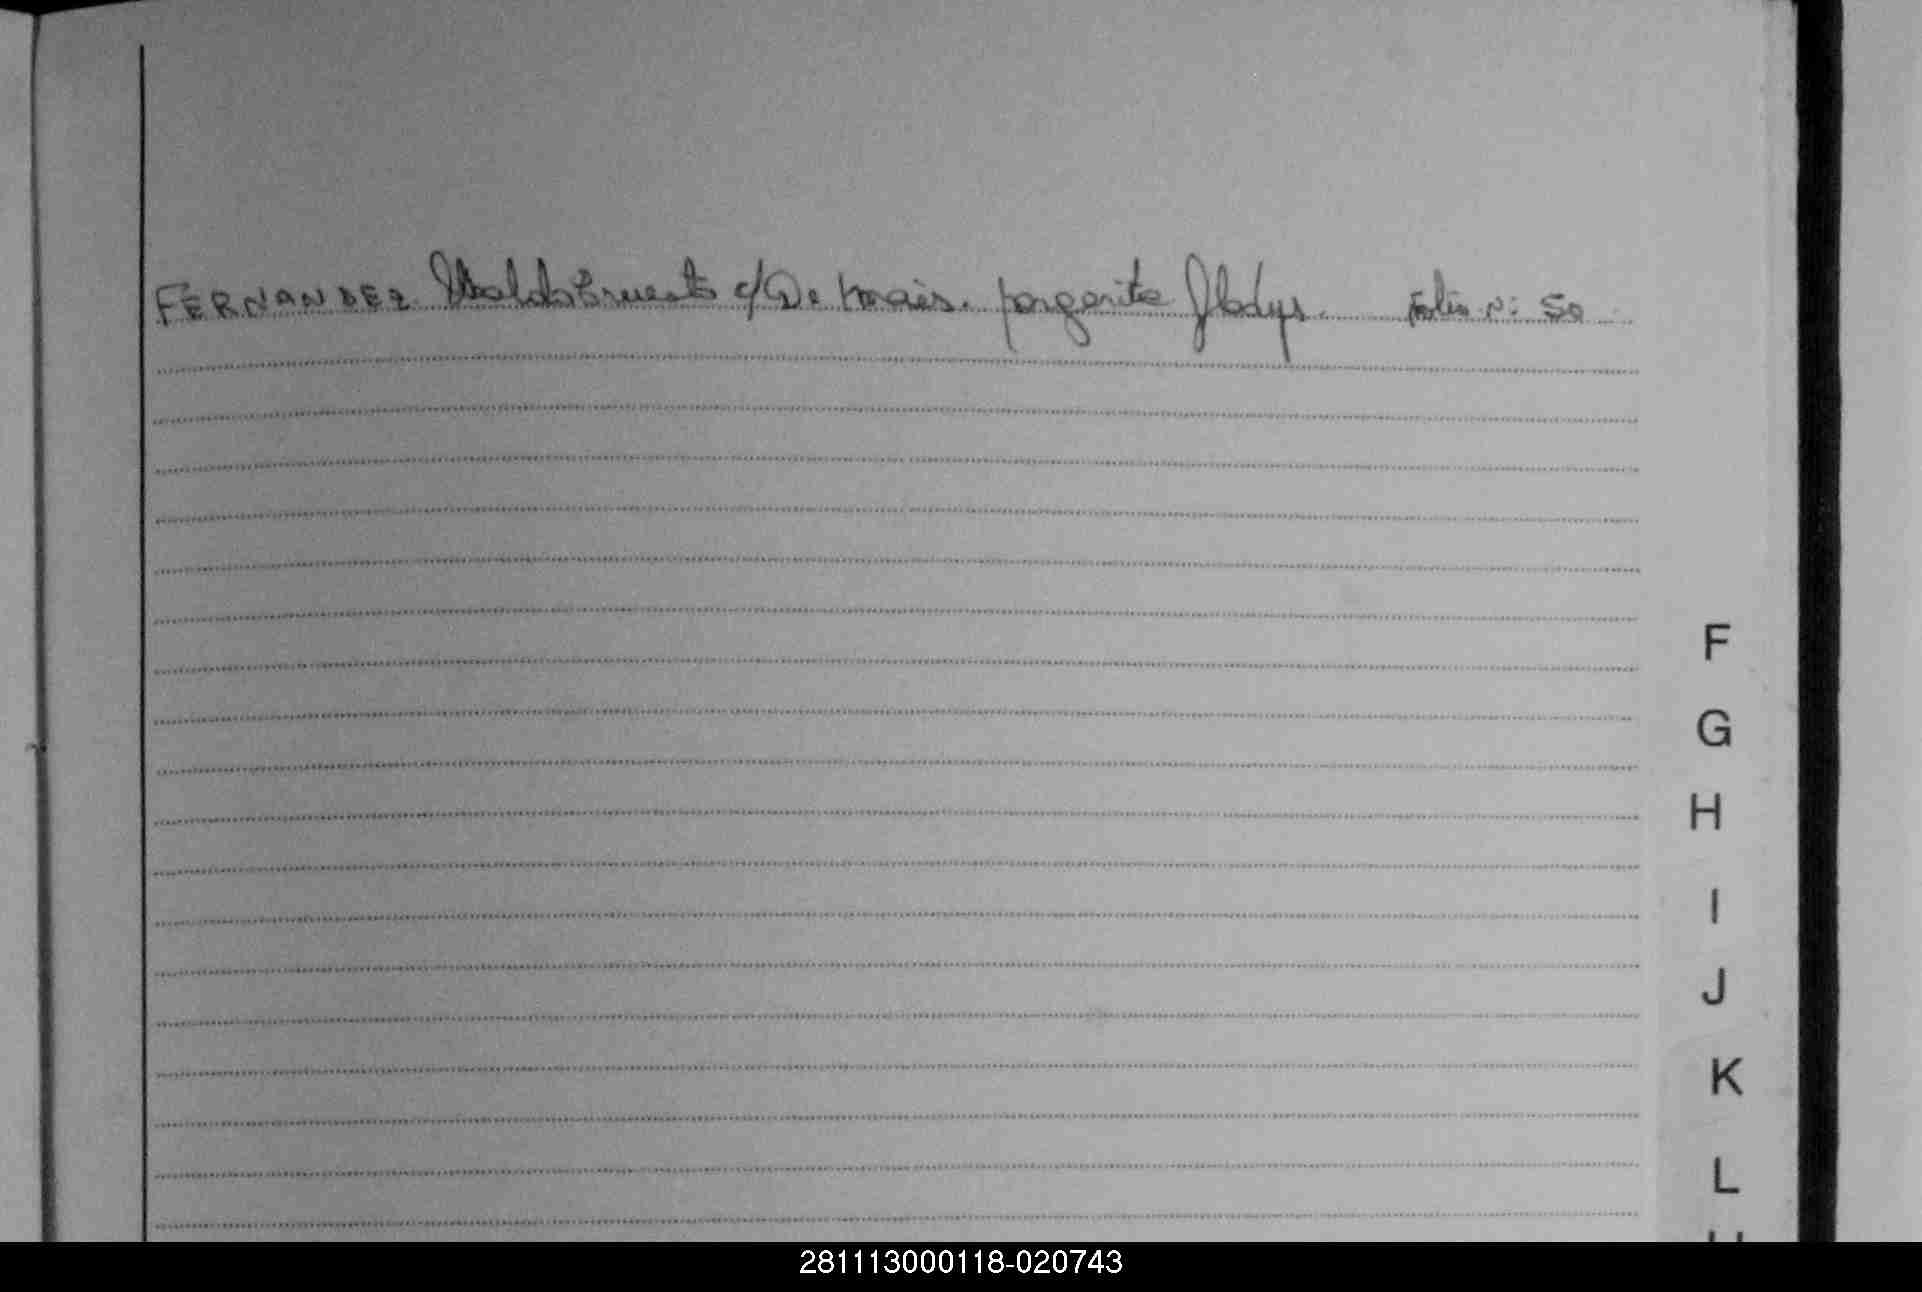 FERNANDEZ Ubaldo Ernesto c/ De Morais. Margarita Gladys. Folio Nº: 50
F
G
H
I
J
K
L
281113000118-020743